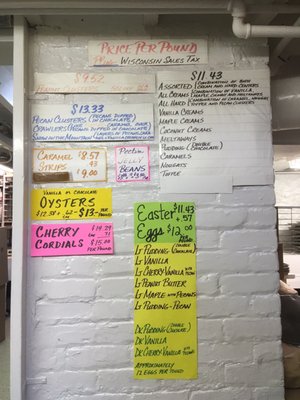 PRICE PER POUND
PLUS WISCONSIN SALES TAX
$9.52
$11.43
ASSORTED (COMBINATION OF BOTH CREAMS AND HARD CENTERS)
ALL CREAMS
ALL HARD
VANILLA CREAMS
MAPLE CREAMS
COCONUT CREAMS
MELTAWAYS
PUDDING (DOUBLE CHOCOLATE)
CARAMELS
NOUGATS
TOFFEE
$13.33
PECAN CLUSTERS (PECANS DIPPED IN CHOCOLATE)
CRAWLERS
CARAMEL STRIPS
$8.57
.43
$9.00
PECTIN
JELLY
BEANS
VANILLA M. CHOCOLATE
OYSTERS
$12.38 + .62 = $13.00
PER POUND
CHERRY CORDIALS
$14.29
.71
$15.00
PER POUND
Easter $11.43
+.57
Eggs $12.00
PER POUND
LT PUDDING (DOUBLE CHOCOLATE)
LT VANILLA
LT CHERRY VANILLA WITH NUTS
LT PEANUT BUTTER
LT MAPLE WITH PECANS
LT PUDDING-PECAN
DK PUDDING (DOUBLE CHOCOLATE)
DK VANILLA
DK CHERRY VANILLA WITH NUTS
APPROXIMATELY
12 EGGS PER POUND